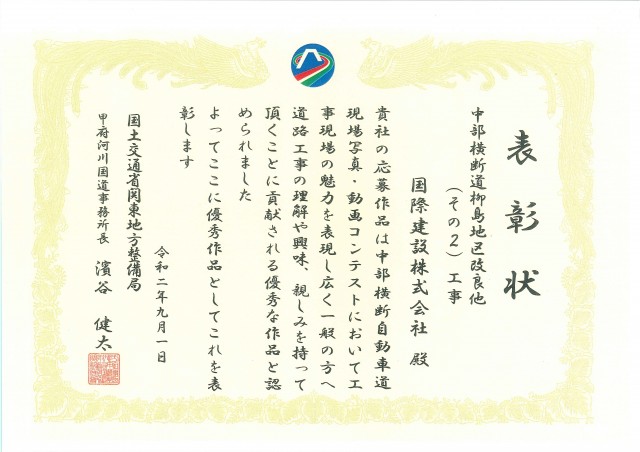 表彰状
中部横断道柳島地区改良他
(その2)工事
国際建設株式会社 殿
貴社の応募作品は中部横断自動車道
現場写真・動画コンテストにおいて工
事現場の魅力を表現し広く一般の方へ
道路工事の理解や興味、親しみを持って
頂くことに貢献される優秀な作品と認
められました
よってここに優秀作品としてこれを表
彰します
令和二年九月一日
国土交通省関東地方整備局
甲府河川国道事務所長 濱谷 健太